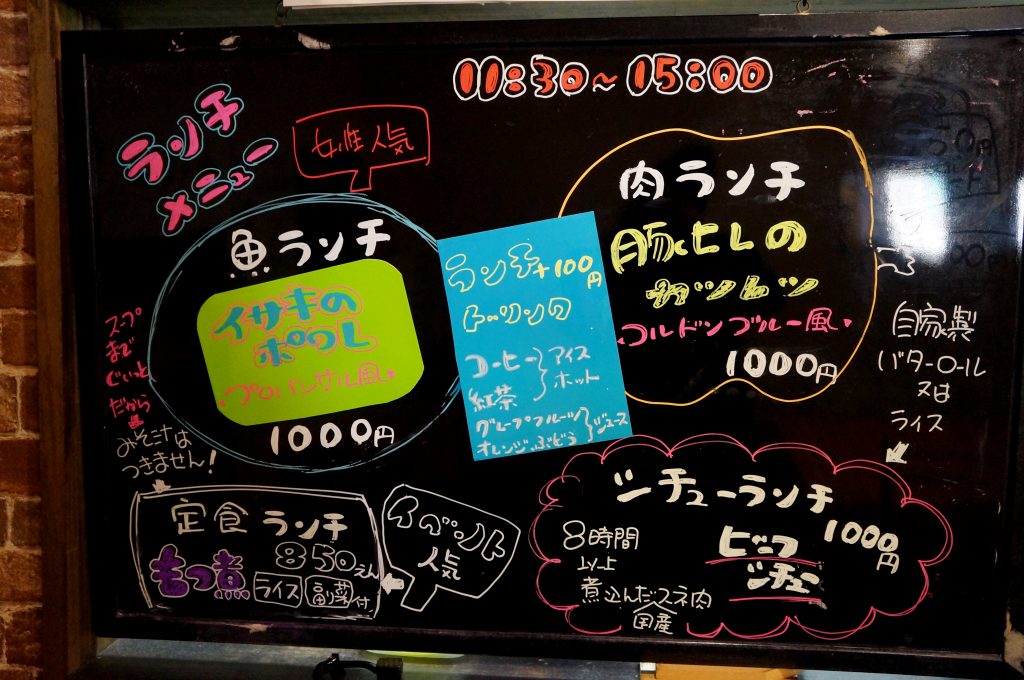 11:30~15:00
ランチ
メニュー
女性人気
魚ランチ
イサキの
ポワレ
プロバンサル風
1000円
ランチ+100円
ドリンク
コーヒー
紅茶
アイス
ホット
グレープフルーツ
オレンジ、ぶどう
ジュース
肉ランチ
豚ヒレの
カツレツ
コルドンブルー風
1000円
自家製
バターロール
又は
ライス
スープ
まで
だから
みそ汁は
つきません!
定食ランチ
850えん
もつ煮
ライス
副菜付
イベント
人気
シチューランチ
1000円
8時間
以上
煮込んだスネ肉
国産
ビーフ
シチュー